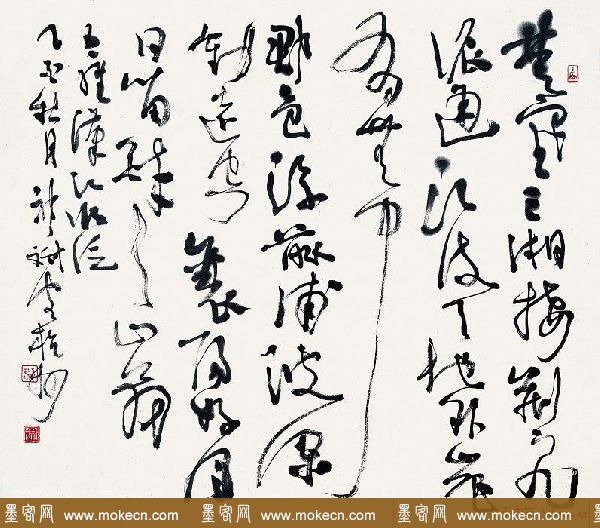 楚塞三湘接荆门九
派通江流天地外山色
有无中
郡邑浮前浦波澜
动远空襄阳好风
日留醉与山翁
王维汉江临泛
乙酉秋月
墨客网 www.mokecn.com 墨客网 www.mokecn.com 墨客网 www.mokecn.com 墨客网 www.mokecn.com